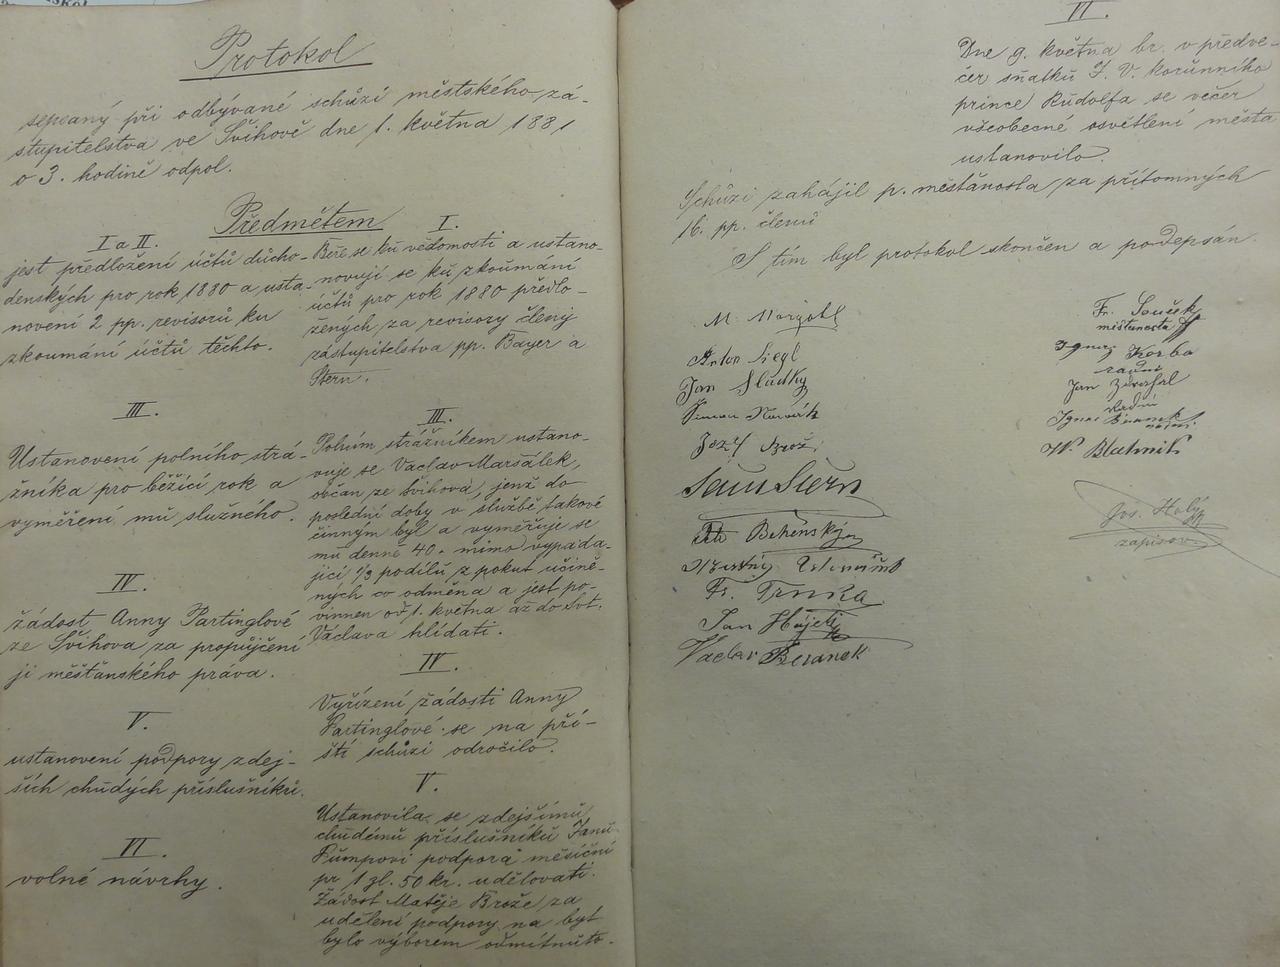 Protokol
sepsaný při odbývané schůzi městského zá-
stupitelstva ve Švihově dne 1. května 1881
o 3. hodině odpol.
Předmětem
I a II.
jest předložení účtů důcho-
denských pro rok 1880 a usta-
novení 2 pp. revisorů ku
zkoumání účtů těchto.
III.
Ustanovení polního strá-
žníka pro běžící rok a
vyměření mu služného.
IV.
žádost Anny Partinglové
ze Švihova za propůjčení
jí měšťanského práva.
V.
ustanovení podpory zdej-
ších chudých příslušníků.
VI
volné návrhy.
I.
Béře se ku vědomosti a ustano-
novují se ku zkoumání
účtů pro rok 1880 předlo-
žených za revisory členy
zástupitelstva pp. Bayer a
Stern.
III.
Pohum strážníkem ustano-
vuje se Václav Maršálek,
občan ze Švihova, jenž do
poslední doby v službě takové
činným byl a vyměřuje se
mu denně 40. mimo vypada-
jící 1/3 podílu z pokut učině-
ných co odměna a jest po-
vinnen od 1. května až do Svt.
Václava hlídati.
IV.
Vyřízení žádosti Anny
Partinglové se na pří-
ští schůzi odročilo.
V.
Ustanovila se zdejšímu
chudému příslušníku Janu
Pumpovi podpora měsíční
pr 1 zl. 50 kr. udělovati.
Žádost Matěje Brože za
udělení podpory na byt
bylo výborem odmítnuto.
VI.
Dne 9. května br. v předve-
čer sňatku J. V. korunního
prince Rudolfa se večer
všeobecné osvětlení města
ustanovilo.
Schůzi zahájil p. měšťanosta za přítomných
16. pp. členů
S tím byl protokol skončen a podepsán.
M.
Anton Siegl
Jan Sladký
Simon Novák
Josef Brož
Sam Stern
Petr Běhenský
Fr. Trnka
Jan Hájek
Václav Beránek
Fr. Souček
měšťanosta
Ignaz Korba
radní
Jan
radní
Ignac Beránek
radní
W. Blahnik
Jos. Holý
zapisov.